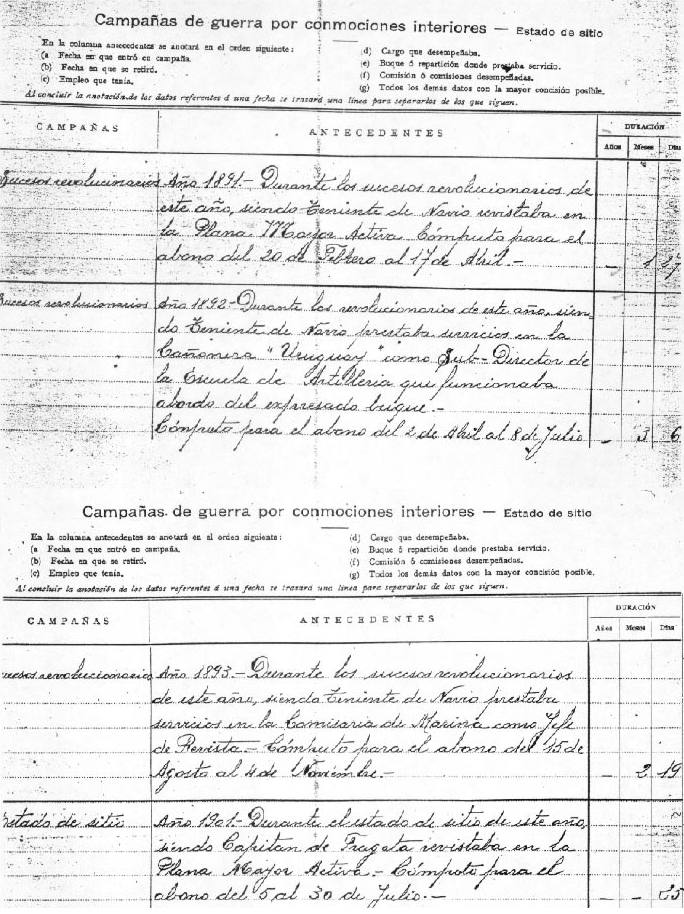 Campañas de guerra por conmociones interiores — Estado de sitio
En la columna antecedentes se anotará en el orden siguiente:
(a Fecha en que entró en campaña.
(b) Fecha en que se retiró.
(c) Empleo que tenía.
(d) Cargo que desempeñaba.
(e) Buque ó repartición donde prestaba servicio.
(f) Comisión ó comisiones desempeñadas.
(g) Todos los demás datos con la mayor concisión posible.
Al concluir la anotación de los datos referentes á una fecha se trazará una línea para separarlos de los que siguen.
CAMPAÑAS
ANTECEDENTES
DURACIÓN
Años Meses Días
Sucesos revolucionarios Año 1891 — Durante los sucesos revolucionarios de
este año, siendo Teniente de Navio revistaba en
la Plana Mayor Activa Cómputo para el
abono del 20 de Febrero al 17 de Abril. — — 1 27
Sucesos revolucionarios Año 1892 - Durante los revolucionarios de este año, sien-
do Teniente de Navio prestaba servicios en la
Cañonera "Uruguay" como Sub-Director de
la Escuela de Artilleria que funcionaba
abordo del expresado buque. —
Cómputo para el abono del 2 de Abril al 8 de Julio — 3 6
Campañas de guerra por conmociones interiores — Estado de sitio
En la columna antecedentes se anotará en el orden siguiente:
(a Fecha en que entró en campaña.
(b) Fecha en que se retiró.
(c) Empleo que tenía.
(d) Cargo que desempeñaba.
(e) Buque ó repartición donde prestaba servicio.
(f) Comisión ó comisiones desempeñadas.
(g) Todos los demás datos con la mayor concisión posible.
Al concluir la anotación de los datos referentes á una fecha se trazará una línea para separarlos de los que siguen.
CAMPAÑAS
ANTECEDENTES
DURACIÓN
Años Meses Días
ucesos revolucionarios Año 1893. — Durante los sucesos revolucionarios
de este año, siendo Teniente de Navio prestaba
servicios en la Comisaria de Marina como Jefe
de Revista — Cómputo para el abono del 15 de
Agosto al 4 de Noviembre — — 2 19
Estado de sitio Año 1901 - Durante el estado de sitio de este año,
siendo Capitan de Fragata revistaba en la
Plana Mayor Activa. — Cómputo para el
abono del 5 al 30 de Julio. — — — 25